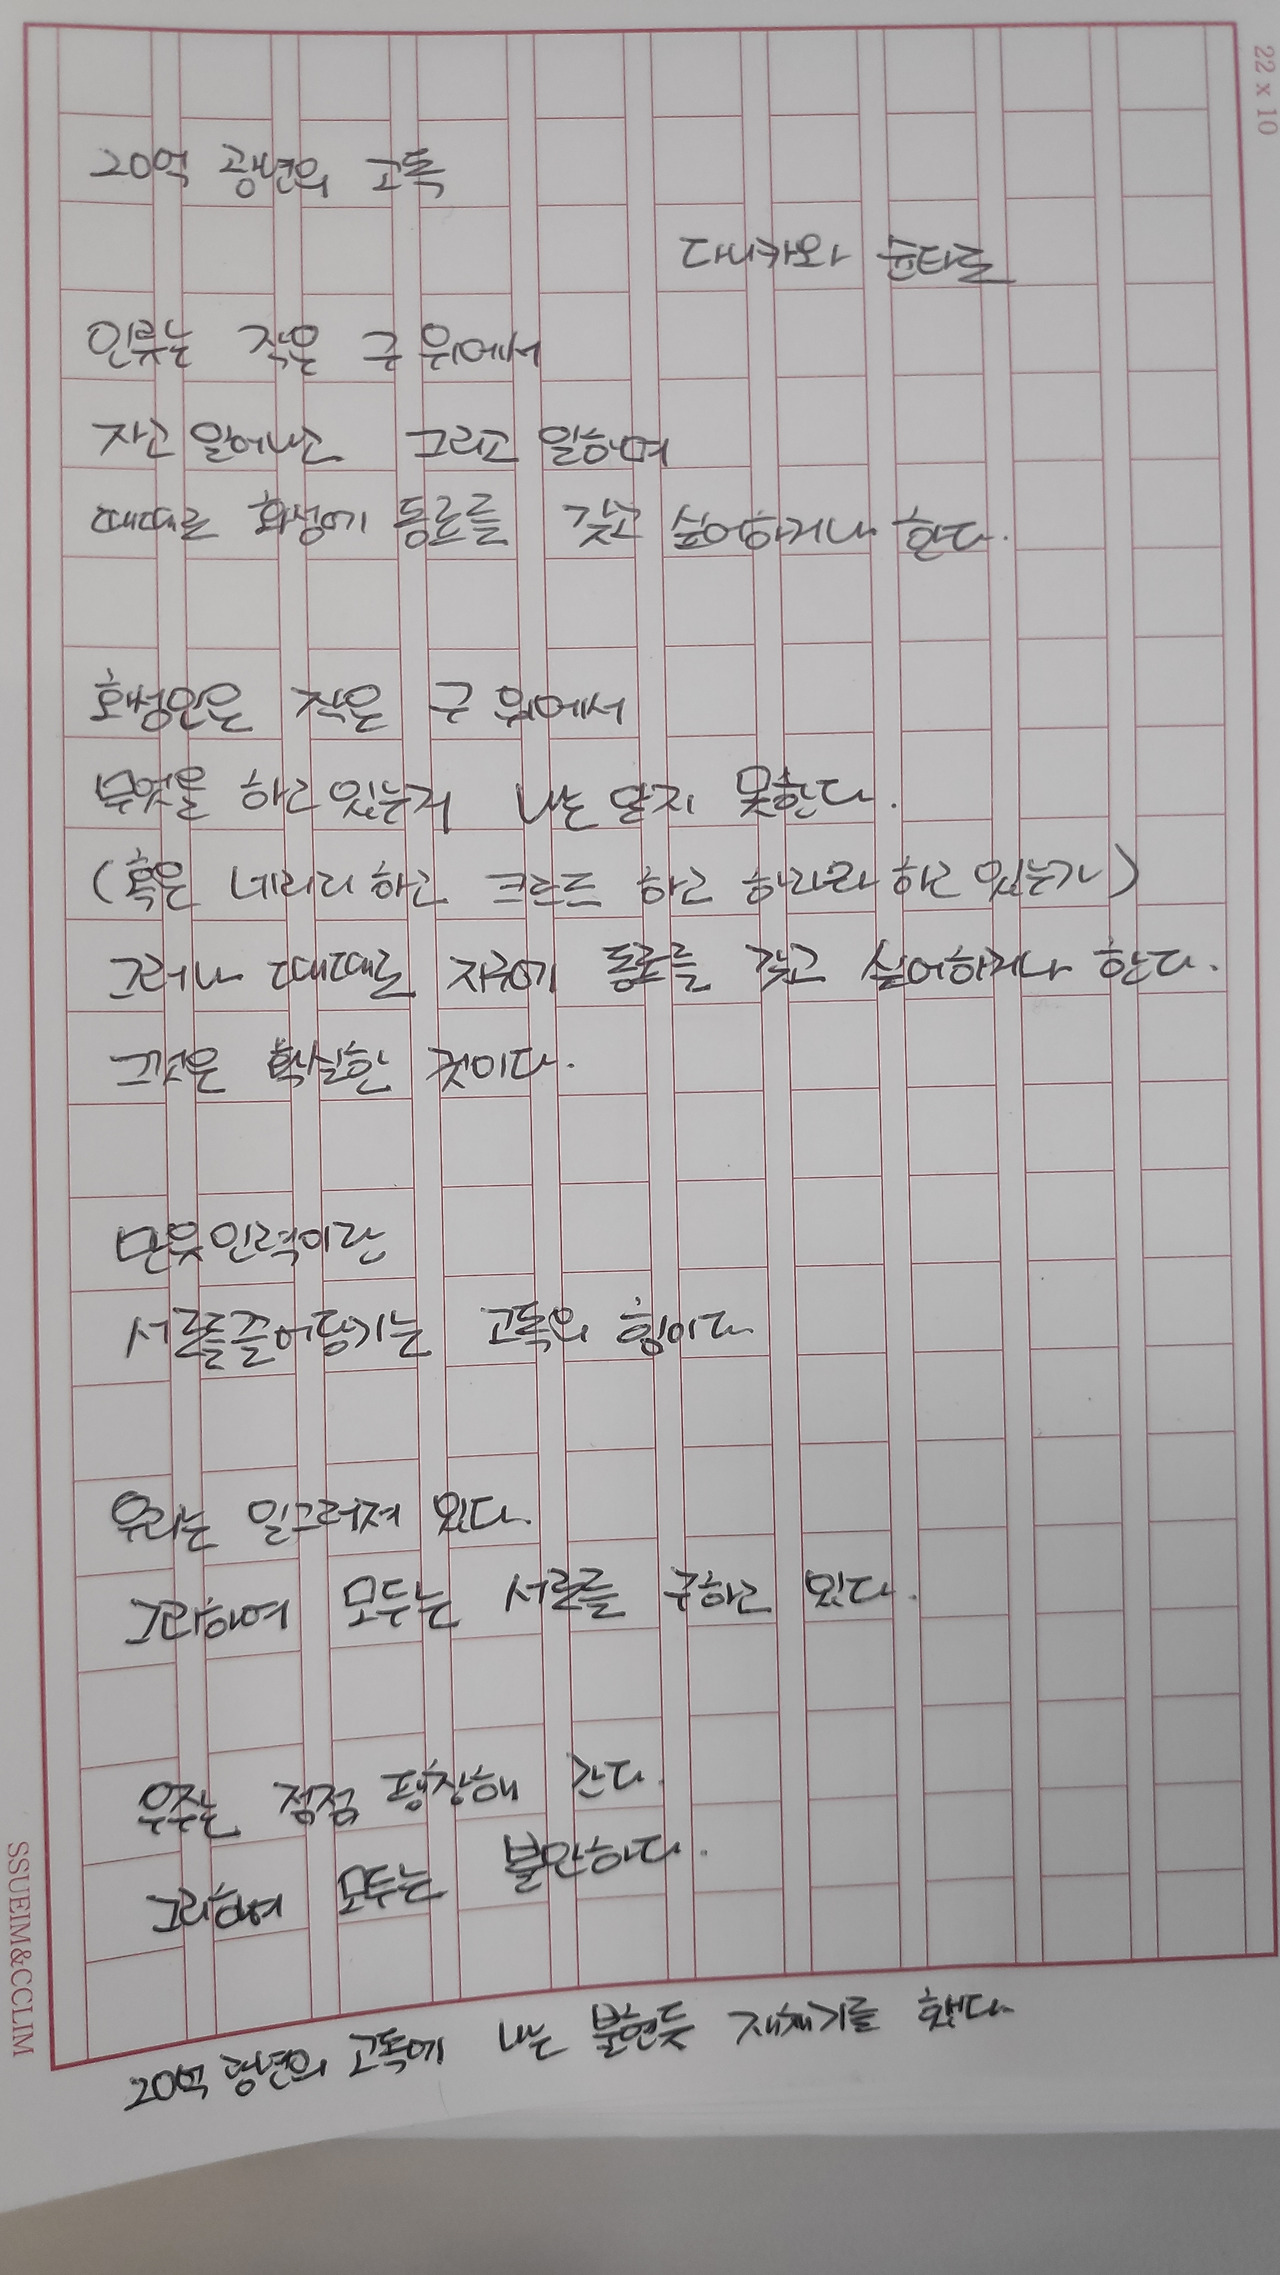 22 x 10
20억 광년의 고독
다니카와 슌타로
인류는 작은 구 위에서
자고 일어나고 그리고 일하며
때때로 화성에 동료를 갖고 싶어하거나 한다.
화성인은 작은 구 위에서
무엇을 하고 있는지 나는 알지 못한다.
(혹은 네리리 하고 크르르 하고 하라라 하고 있는가)
그러나 때때로 지구에 동료를 갖고 싶어하거나 한다.
그것은 확실한 것이다.
만유인력이란
서로를끌어당기는 고독의 힘이다
우리는 일그러져 있다.
그리하여 모두는 서로를 구하고 있다.
우주는 점점 팽창해 간다.
그리하여 모두는 불안하다.
20억 광년의 고독에 나는 불현듯 재채기를 했다
SSUEIM&CCLIM